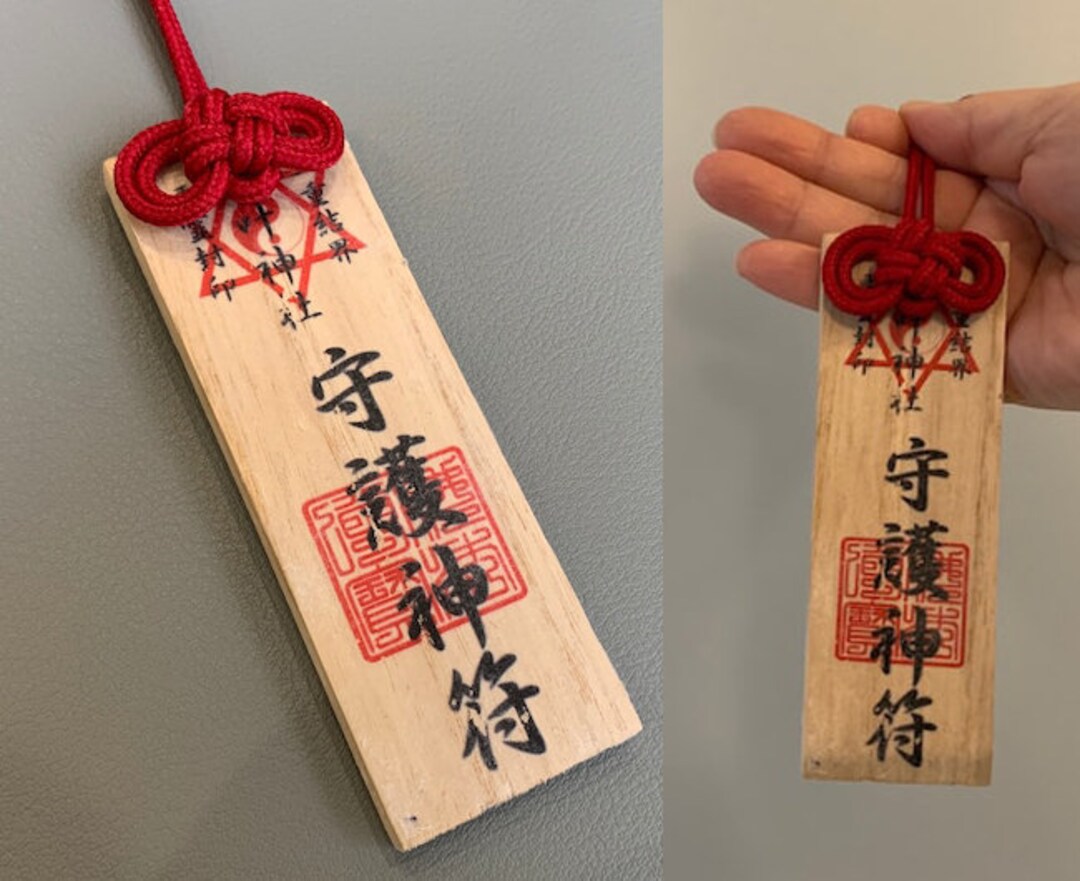 重結界
叶神社
封印
守護神符
結界
神社
封印
守護神符